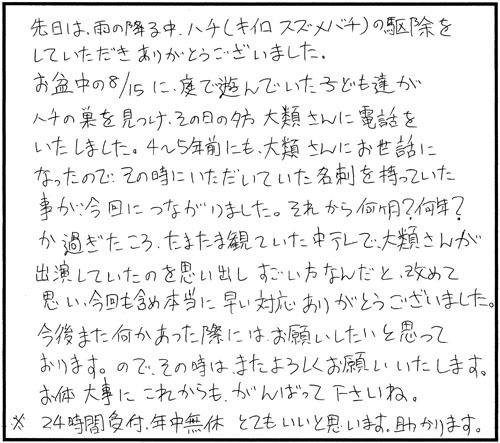 先日は、雨の降る中、ハチ(キイロスズメバチ)の駆除を
していただきありがとうございました。
お盆中の8/15に、庭で遊んでいた子ども達が
ハチの巣を見つけ、その日の夕方 大類さんに電話を
いたしました。4〜5年前にも、大類さんにお世話に
なったので、その時にいただいていた名刺を持っていた
事が、今回につながりました。それから何ヶ月?何年?
か過ぎたころ、たまたま観ていた中テレで、大類さんが
出演していたのを思い出しすごい方なんだと、改めて
思い、今回も含め本当に早い対応ありがとうございました。
今後また何かあった際には、お願いしたいと思って
おります。ので、その時は、またよろしくお願いいたします。
お体大事にこれからも、がんばって下さいね。
※ 24時間受付、年中無休 とてもいいと思います。助かります。